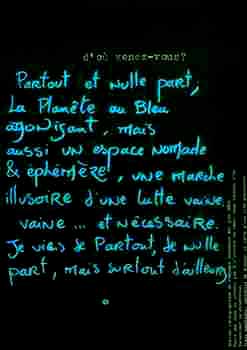 d'où venez-vous?
Partout et nulle part,
La Planète au Bleu
agonisant, mais
aussi un espace nomade
& éphémère, une marche
illusoire d'une lutte vaine,
vaine ... et nécessaire.
Je viens de Partout, de nulle
part, mais surtout d'ailleurs